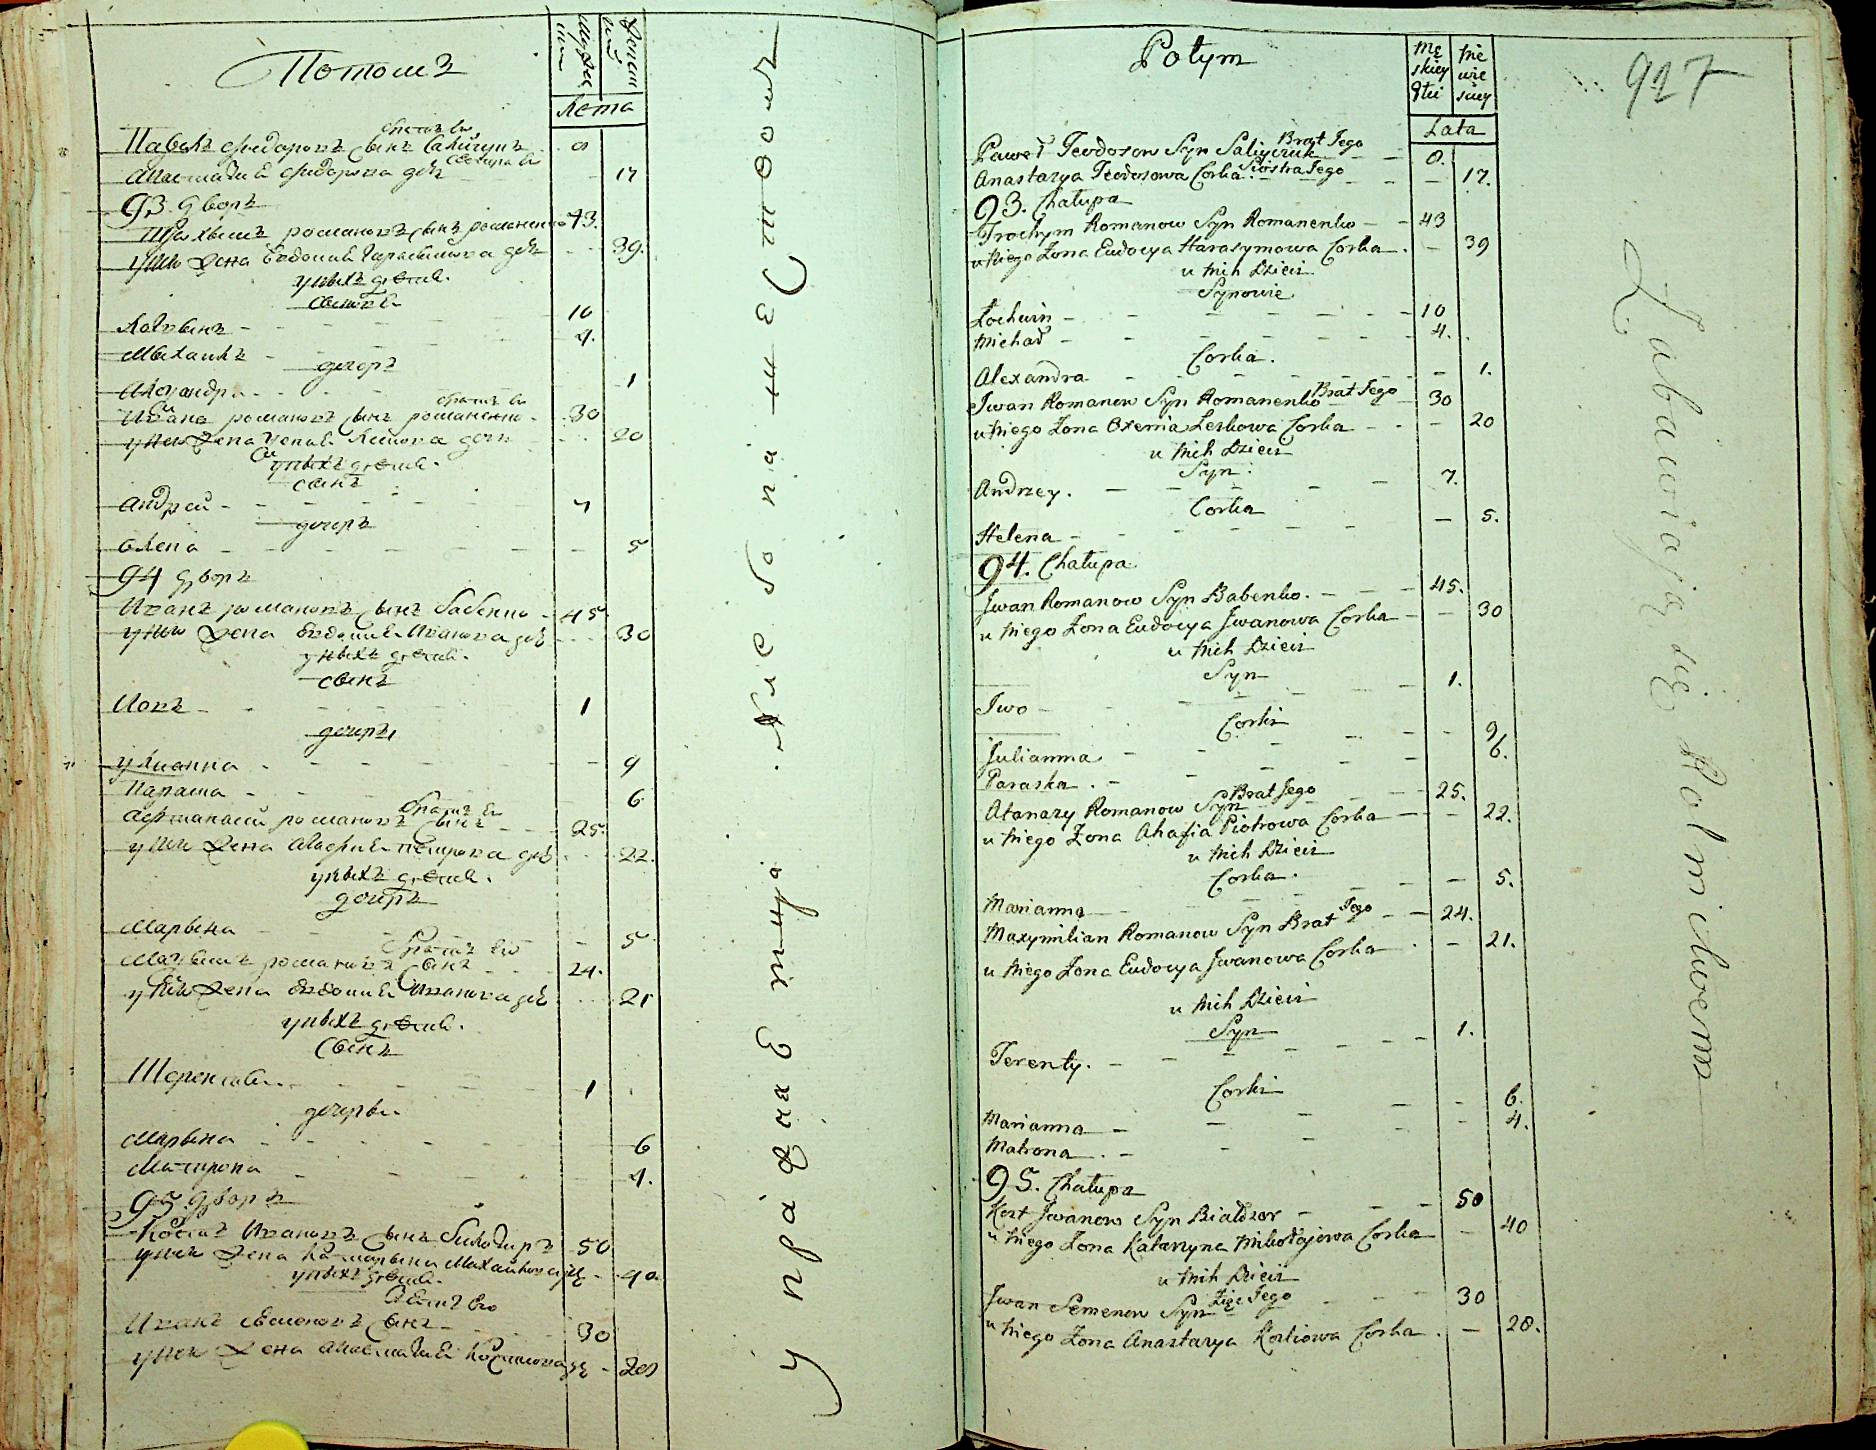 Потомъ
Лета
Павелъ Федоровъ сынъ Саличукъ братъ ево 8
Анастасия Федорова дочь сестра ево 17
93 дворъ
Трахимъ романовъ сынъ романенко 43.
у нево жена Евдокия Гарасимова дочь 39.
у нихъ дети.
сыновья
Логвынъ 10
Мыхаила 4.
дочерь
Александра 1
Иванъ романовъ сынъ романенко братъ ево 30
20
у нихъ дети.
сынъ
андрей 7
дочерь
олена 5
94 дворъ
Иванъ романовъ сынъ бабенко 45
у нево жена Евдокия Иванова дочь 30
у нихъ дети.
сынъ
Иовъ 1
дочери
улианна 9
параска 6
Афтанасий романовъ сынъ братъ ево 25.
у нево жена Агафия петрова дочь 22.
у нихъ дети.
дочерь
Марьяна 5
романовъ сынъ братъ ево 24.
у нево жена Евдокия Иванова дочь 21
у нихъ дети.
сынъ
Терентий 1
дочери
Марьяна 6
Матрона 4.
95 дворъ
Костъ Ивановъ сынъ 50
у нево жена Катерына дочь 40
у нихъ дети.
зять ево
Иванъ семеновъ сынъ 30
у нево жена Анастасия Костова дочь 20
Potym
Męskiey Płci
Niewieściey
Lata
Paweł Teodorow Syn Saliyczuk Brat Jego 8.
Anastazya Teodorowa Corka Siostra Jego 17.
93. Chałupa
Trochym Romanow Syn Romanenko 43
u Niego Zona Eudocya Harasymowa Corka 39
u Nich Dzieci
Synowie
Łochwin 10
Michał 4.
Corka.
Alexandra 1.
Jwan Romanow Syn Romanenko Brat Jego 30
u Niego Zona Oxenia Leskowa Corka 20
u Nich Dzieci
Syn.
Andrzey. 7.
Corka
Helena 5.
94. Chałupa
Jwan Romanow Syn Babenko. 45.
u Niego Zona Eudocya Jwanowa Corka 30
u Nich Dzieci
Syn
Jwo 1.
Corki
Julianna 9
Paraska. 6.
Atanazy Romanow Syn Brat Jego 25.
u Niego Zona Ahafia Piotrowa Corka 22.
u Nich Dzieci
Corka.
Marianna 5.
Maxymilian Romanow Syn Brat Jego 24.
u Niego Zona Eudocya Jwanowa Corka 21.
u Nich Dzieci
Syn
Terenty. 1.
Corki
Marianna 6.
Matrona. 4.
95. Chałupa
Kost Jwanow Syn Białozor 50
u Niego Zona Katarzyna Mikołajowa Corka 40
u Nich Dzieci
Jwan Semenow Syn Zięć Jego 30
u Niego Zona Anastazya Kostiowa Corka. 20.
927
Zabawiają się Rolnictwem